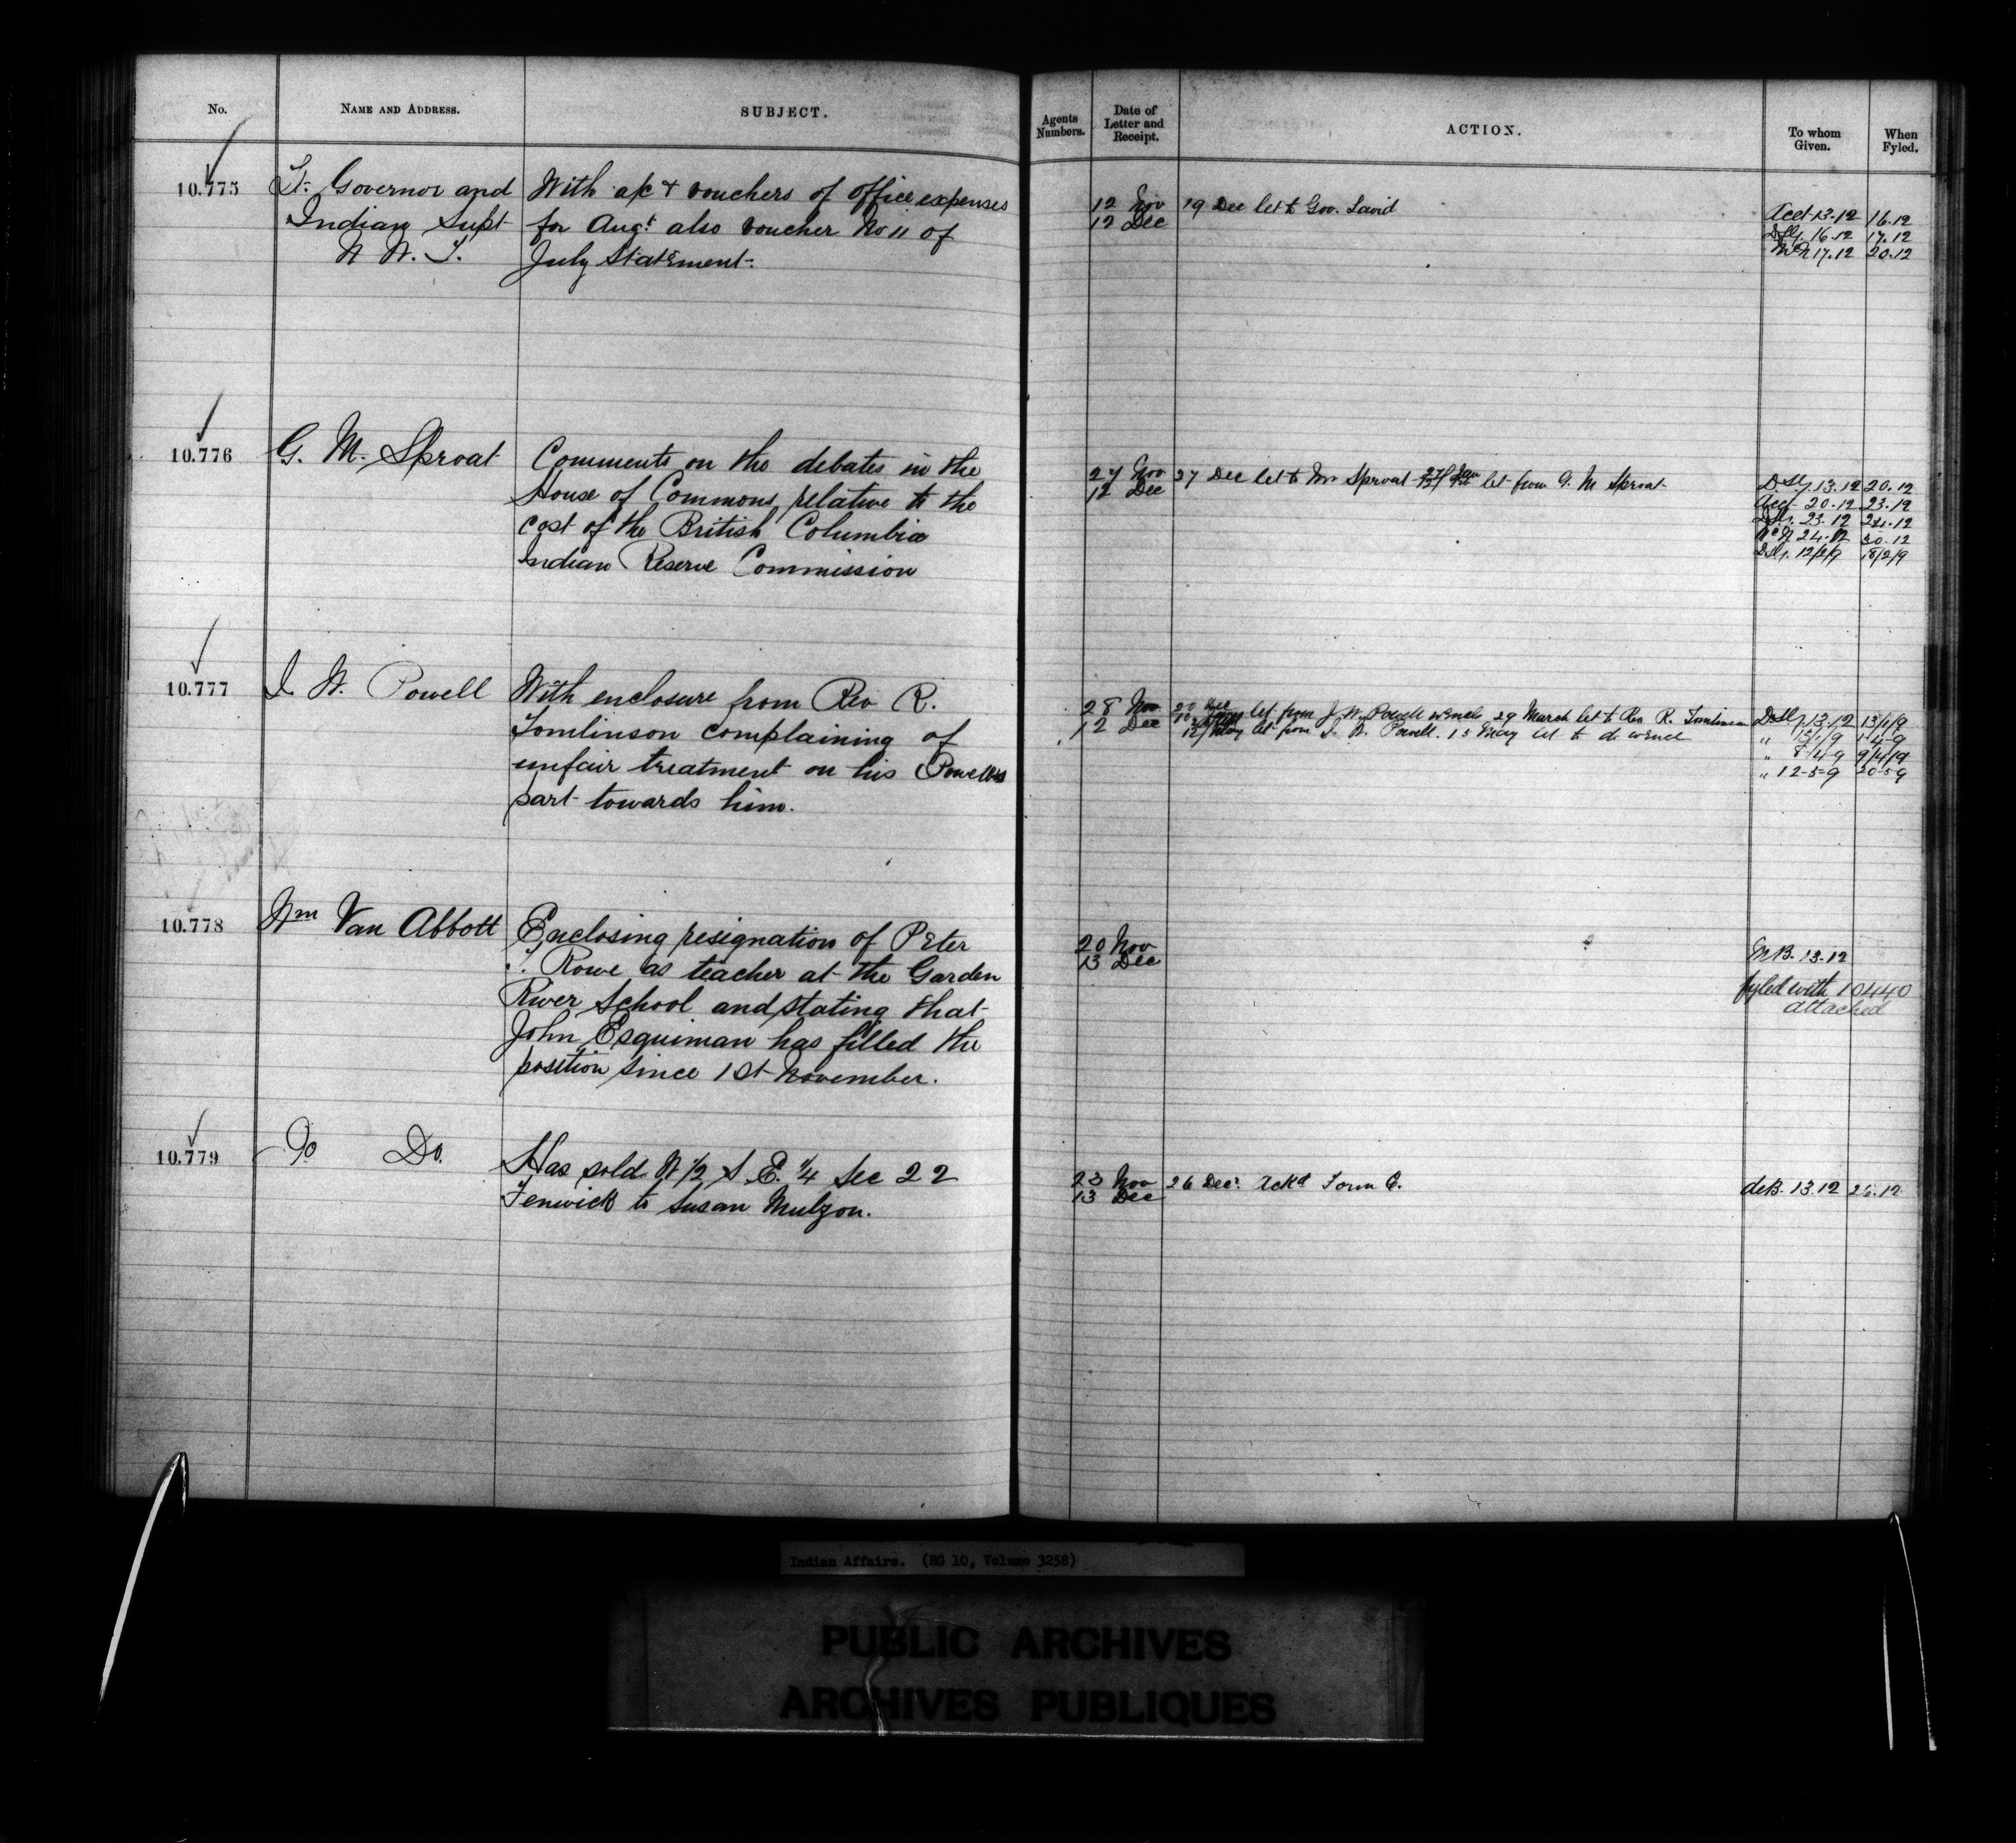 No.
NAME AND ADDRESS.
SUBJECT.
Agents Numbers.
Date of Letter and Receipt.
ACTION.
To whom Given.
When Fyled.
10.775
Lt. Governor and
Indian Supt
N W. T.
With a/c & vouchers of office expenses
for Augt. also voucher No 11 of
July Statement.
12 Nov
12 Dec
19 Dec let to Gov. Laird
Acct 13.12 16.12
16.12 17.12
17.12 20.12
10.776
G. M. Sproat
Comments on the debates in the
House of Commons relative to the
cost of the British Columbia
Indian Reserve Commission
27 Nov
12 Dec
27 Dec let to Mr Sproat let from G. M Sproat
13.12 20.12
Acct 20.12 23.12
23.12 24.12
24.12 30.12
12/2/9 18/2/9
10.777
I. W. Powell
With enclosure from Rev R.
Tomlinson complaining of
unfair treatment on his Powells
part towards him.
28 Nov
12 Dec
20 Dec
let from J. W. Powell w encls 29 March let to Rev R. Tomlinson
12/ May let from I. W. Powell. 15 May let to do w encl
13.12 13/1/9
" 13/1/9 1-4-9
" 8/4/9 9/4/9
" 12-5-9 20-5-9
10.778
Wm Van Abbott
Enclosing resignation of Peter
T. Rowe as teacher at the Garden
River School and stating that
John Esquiman has filled the
position since 1st November.
20 Nov
13 Dec
13.12
fyled with 10440
attached
10.779
Do Do.
Has sold N 1/2 S. E. 1/4 Sec 22
Fenwick to Susan Mulzon.
23 Nov
13 Dec
26 Dec. Ackd Form C.
deB. 13.12 26.12
Indian Affairs. (RG 10, Volume 3258)
PUBLIC ARCHIVES
ARCHIVES PUBLIQUES